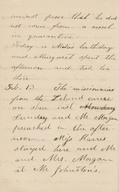 proof that he did
not come from a vessel
in quarantine.
Today is birthday
and Margaret spent the
afternoon and had tea
here.
Feb. 13. The missionaries
from the Island came
on shore
Sunday and Mr.
preached in the after
noon.
stayed here and Mr.
and Mrs.
at Mr Johnstone's.